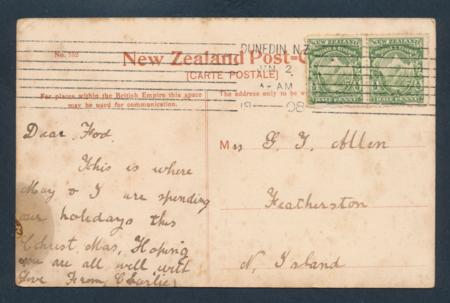 No. 155
New Zealand Post-C
(CARTE POSTALE)
DUNEDIN N.Z
2
AM
08
NEW ZEALAND
POSTAGE & REVENUE
HALF PENNY
NEW ZEALAND
POSTAGE & REVENUE
HALF PENNY
For places within the British Empire this space
may be used for communication.
The address only to be w
Dear
This is where
May & I are spending
our holidays this
Christ. Mas, Hoping
you are all well with
love From Charlie
M G. J. Allen
Featherston
N. Island